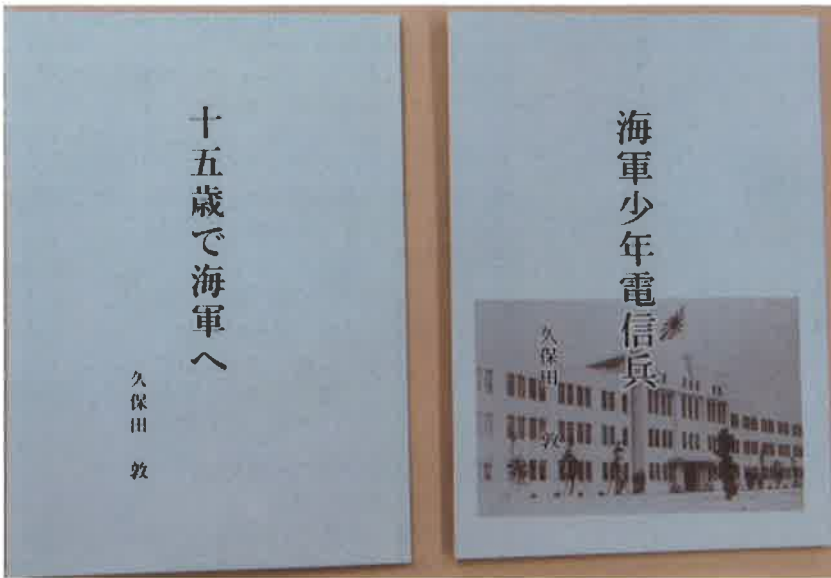 十五歳で海軍へ
久保田 敦
海軍少年電信兵
久保田 敦